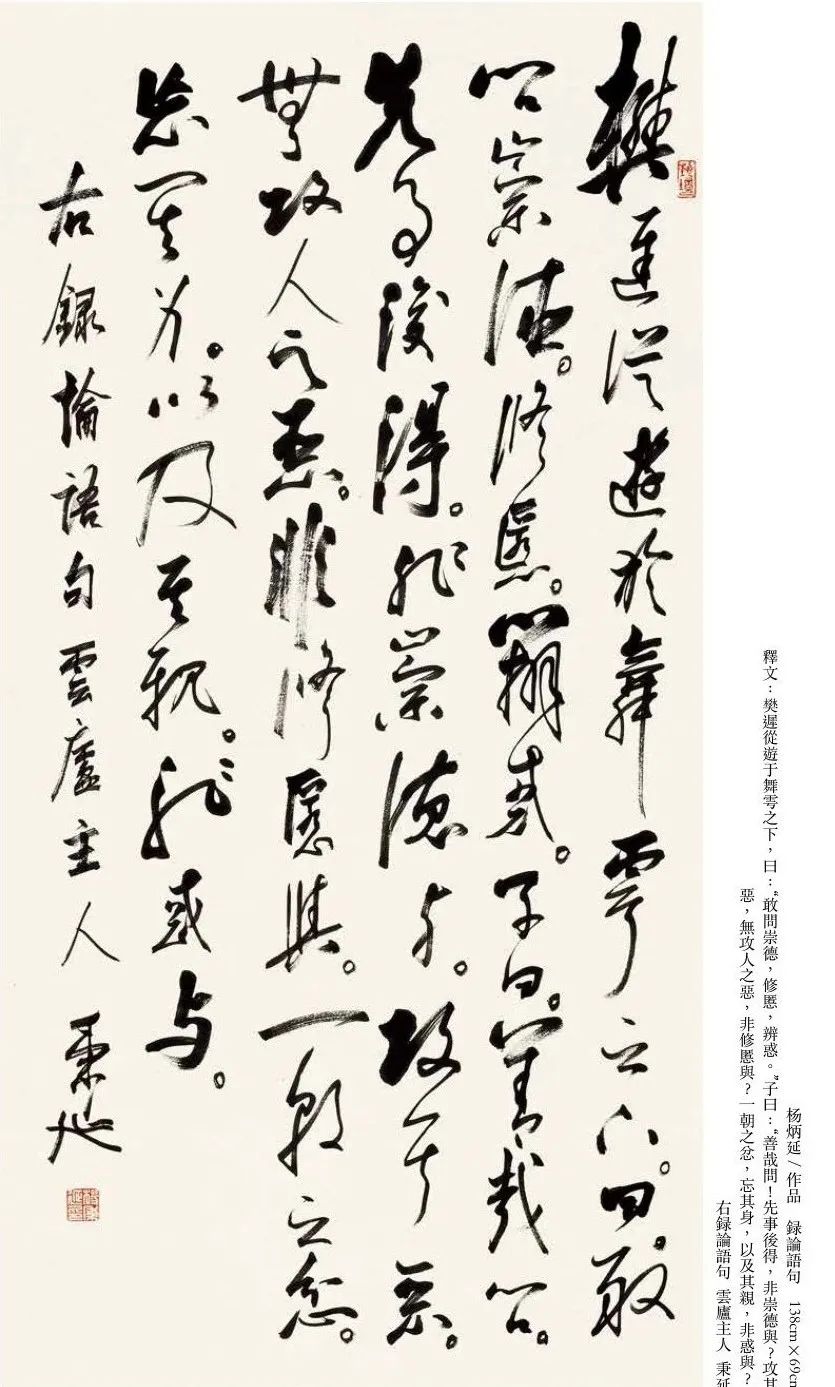 樊遲從遊於舞雩之下。曰。敢
問崇德。修慝。辨惑。子曰。善哉問。
先事後得。非崇德与。攻其惡。
無攻人之惡。非修慝與。一朝之忿。
忘其身。以及其親。非惑与。
右録論語句雲廬主人 秉延
杨炳延/作品 録論語句 138cm×69cm
釋文：樊遲從遊于舞雩之下，曰：“敢問崇德，修慝，辨惑。”子曰：“善哉問！先事後得，非崇德與？攻其
惡，無攻人之惡，非修慝與？一朝之忿，忘其身，以及其親，非惑與？
右録論語句 雲廬主人 秉延